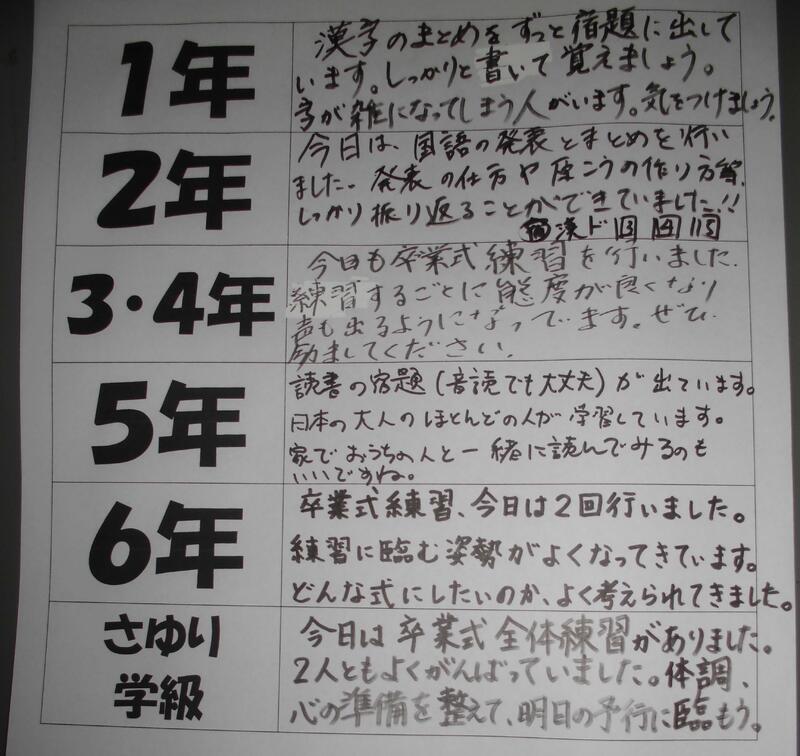 1年
漢字のまとめをずっと宿題に出して
います。しっかりと書いて覚えましょう。
字が雑になってしまう人がいます。気をつけましょう。
2年
今日は、国語の発表とまとめを行い
ました。発表の仕方や原こうの作り方等、
しっかり振り返ることができていました!!
宿漢ド13 14 115
3・4年
今日も卒業式練習を行いました。
練習するごとに態度が良くなり
声も出るようになっています。ぜひ
励ましてください。
5年
読書の宿題(音読でも大丈夫)が出ています。
日本の大人のほとんどの人が学習しています。
家でおうちの人と一緒に読んでみるのも
いいですね。
6年
卒業式練習、今日は2回行いました。
練習に臨む姿勢がよくなってきています。
どんな式にしたいのか、よく考えられてきました。
さゆり
学級
今日は卒業式全体練習がありました。
2人ともよくがんばっていました。体調、
心の準備を整えて、明日の予行に臨もう。